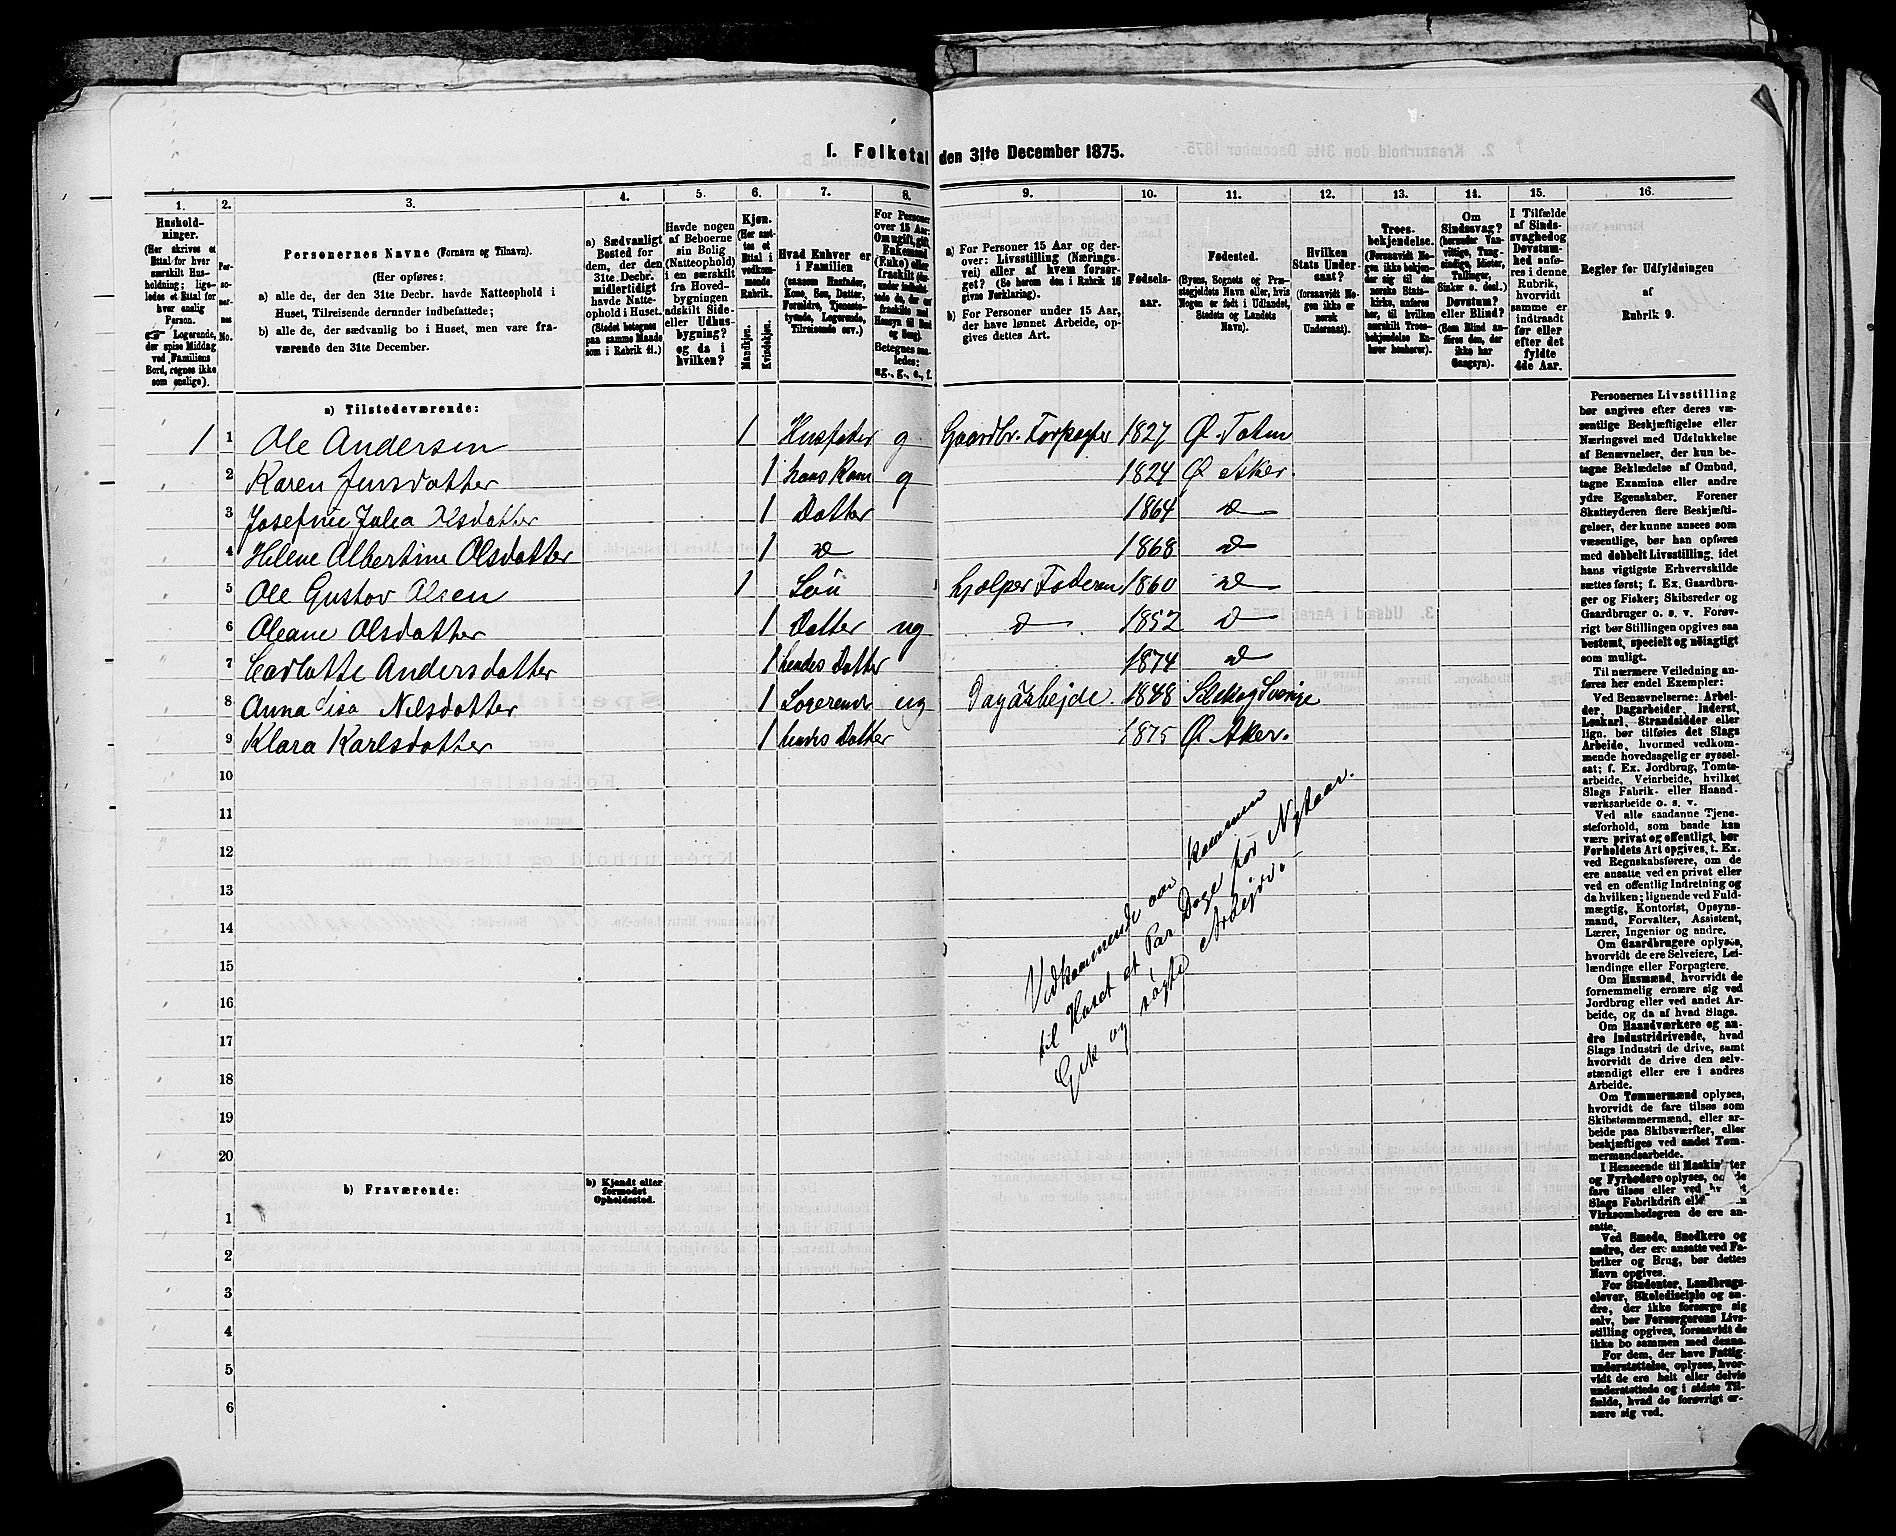 1. Folketal den 31te December 1875.
1. 2. 3. 4. 5. 6. 7. 8. 9. 10. 11. 12. 13. 14. 15. 16.
Hushold-
ninger.
(Her skrives et
Ettal for hver
særskilt Hus-
holdning; lige-
ledes et Ettal for
hver enslig
Person.
Logerende,
der spise Middag
ved Familiens
Bord, regnes ikke
som enslige).
Per-
soner-
nes
No.
Personernes Navne (Fornavn og Tilnavn).
(Her opføres:
a) alle de, der den 31te Decbr. havde Natteophold i
Huset, Tilreisende derunder indbefattede;
b) alle de, der sædvanlig bo i Huset, men vare fra-
værende den 31te December.
a) Sædvanligt
Bosted for
dem, der den
31te Decbr.
midlertidigt
havde Natte-
ophold i Huset.
(Stedet betegnes
paa samme Maade
som i Rubrik 11.)
Havde nogen
af Beboerne
sin Bolig
(Natteophold)
i en særskilt
fra Hoved-
bygningen
adskilt Side-
eller Udhus-
bygning?
og da i
hvilken?
Kjøn.
(Her sæt-
tes et
Ettal i
vedkom-
mende
Rubrik.
Mandkjøn.
Kvindekjøn.
Hvad Enhver er
i Familien
(saasom Husfader,
Kone, Søn, Datter,
Forældre, Tjeneste-
tyende, Logerende,
Tilreisende osv.)
For Personer
over 15 Aar:
Om ugift, gift,
Enkemand
(Enke) eller
fraskilt
Betegnes saa-
ledes:
ug., g., e., f.
a) For Personer 15 Aar og der-
over: Livsstilling (Nærings-
vei) eller af hvem forsør-
get? (Se herom den i Rubrik 16
givne Forklaring).
b) For Personer under 15 Aar,
der have lønnet Arbeide, op-
gives dettes Art.
Fødsels-
aar.
Fødested.
(Byens, Sognets og Præ-
stegjeldets Navn eller, hvis
Nogen er født i Udlandet,
Stedets og Landets
Navn).
Hvilken
Stats Under-
saat?
(forsaavidt No-
gen ikke er
norsk
Undersaat).
Troes-
bekjendelse.
(Forsaavidt No-
gen ikke bekjen-
der sig til den
norske Stats-
kirke, anføres
her, til hvilken
særskilt Troes-
bekjendelse En-
hver henhører).
Om
Sindssvag?
(herunder Van-
vittige, Tung-
sindige, Idioter,
Tullinger,
Sinker o. desl.)
Døvstum?
eller Blind?
(Som Blind an-
føres den, der
ikke har
Gangsyn).
I Tilfælde
af Sinds-
svaghed og
Døvstum-
hed anfø-
res i denne
Rubrik,
hvorvidt
samme er
indtraadt
før eller
efter det
fyldte
4de Aar.
Regler for Udfyldningen
af
Rubrik 9.
a) Tilstedeværende:
1 1 Ole Andersen 1 Husfader g Gaardbr. Forpagter 1827 Ø. Toten
2 Karen Jensdatter 1 hans Kone g 1824 Ø Aker.
3 Josefine Julia Olsdatter 1 Datter 1864 do
4 Helene Albertine Olsdatter 1 do 1868 do
5 Ole Gustov Olsen 1 Søn hjælper Faderen 1860 do
6 Oleane Olsdatter 1 Datter ug do 1852 do
7 Carlotte Andersdatter 1 hendes Datter 1874 do
8 Anna Lisa Nilsdatter 1 Logerende ug Dagarbejde. 1848 Sverige
9 Klara Karlsdatter 1 hendes Datter 1875 Ø Aker.
10
11
12
13
14
15
16
17
18
19
20
Vedkommende kommen
til Huset et Par Dage før Nytaar.
Gik og søgte Arbejde.
b) Fraværende:
b) Kjendt eller
formodet
Opholdssted.
1
2
3
4
5
6
Personernes Livsstilling
bør angives efter deres væ-
sentlige Beskjæftigelse eller
Næringsvei med Udelukkelse
af Benævnelser, der kun be-
tegne Beklædelse af Ombud,
tagne Examina eller andre
ydre Egenskaber. Forener
Skatteyderen flere Beskjæfti-
gelser, der kunne ansees som
væsentlige, bør han opføres
med dobbelt Livsstilling, idet
hans vigtigste Erhvervskilde
sættes først; f. Ex. Gaardbru-
ger og Fisker; Skibsreder og
Gaardbruger o. s. v. Forøv-
rigt bør Stillingen opgives saa
bestemt, specielt og nøiagtigt
som muligt.
Til nærmere Veiledning an-
føres her endel Exempler:
Ved Benævnelserne: Arbei-
der, Dagarbeider, Inderst,
Løskarl, Strandsidder eller
lign. bør tilføies det Slags
Arbeide, hvormed vedkom-
mende hovedsagelig er syssel-
sat; f. Ex. Jordbrug, Tomte-
arbeide, Veiarbeide, hvilket
Slags Fabrik- eller Haand-
værksarbeide o. s. v.
Ved alle saadanne Tjene-
steforhold, som baade kan
være privat og offentligt, bør
Forholdets Art opgives, t. Ex.
ved Regnskabsførere, om de
ere ansatte ved en privat eller
ved en offentlig Indretning og
da hvilken; lignende ved Fuld-
mægtig, Kontorist, Opsyns-
mand, Forvalter, Assistent,
Lærer, Ingeniør og andre.
Om Gaardbrugere oplyses,
hvorvidt de ere Selveiere, Lei-
lændinge eller Forpagtere.
Om Husmænd, hvorvidt de
fornemmelig ernære sig ved
Jordbrug eller ved andet Ar-
beide, og da af hvad Slags.
Om Haandværkere og an-
dre Industridrivende, hvad
Slags Industri de drive, samt
hvorvidt de drive den selv-
stændigt eller ere i andres
Arbeide.
Om Tømmermænd oplyses,
hvorvidt de fare tilsøs som
Skibstømmermænd, eller ar-
beide paa Skibsværfter, eller
beskjæftiges ved andet Tøm-
mermandsarbeide.
I Henseende til Maskinister
og Fyrbødere oplyses, om de
fare tilsøs eller ved hvilket
Slags Fabrikdrift eller
Virksomhedsgren de ere an-
satte.
Ved Smede, Snedkere og
andre, der ere ansatte ved Fa-
briker og Brug, bør dettes
Navn opgives.
For Studenter, Landbrugs-
elever, Skoledisciple og an-
dre, der ikke forsørge sig
selv, bør Forsørgerens Livs-
stilling opgives, forsaavidt de
ikke bo sammen med denne.
For dem, der have Fattig-
understøttelse, oplyses, hvor-
vidt de ere helt eller delvis
understøttede og i sidste Til-
fælde, hvad de forøvrigt er-
nære sig ved.